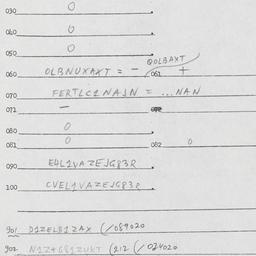 030 0
040 0
050 0
QOLBAXT
060 OLBNUXAXT = - 061 +
070 FERTLC1NA1N = ... NAN
071 -
080 0
081 0 082 0
090 E4L1VAZEJG83R
100 CVEL1VAZEJG83R
901 D1ZELB1ZAX (/089020
902 N1Z+G81ZUKT (212 (/024020